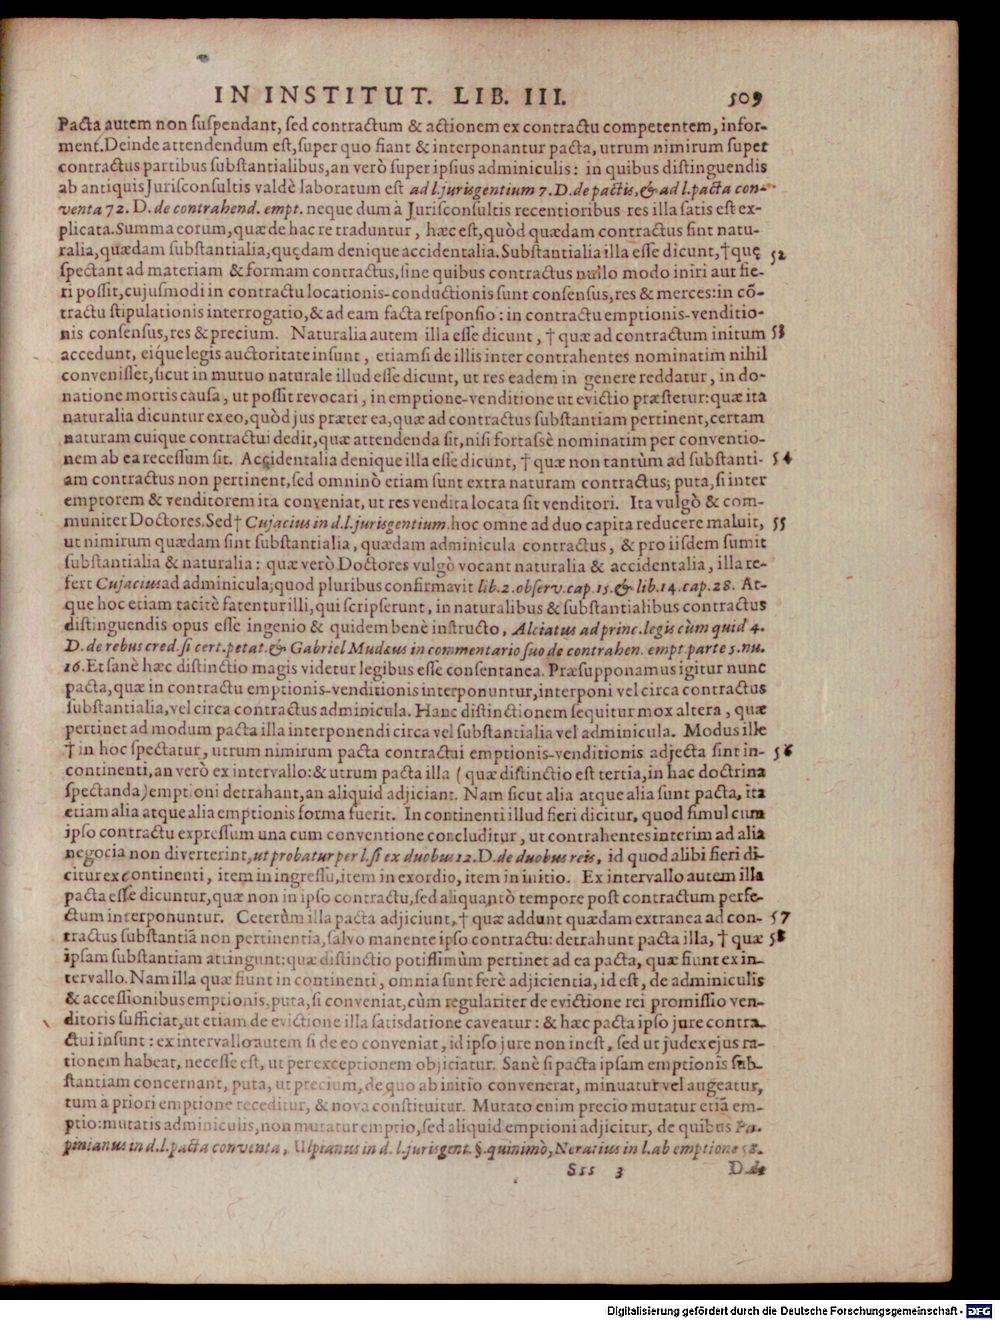 IN INSTITUT. LIB. III. 509
Pacta autem non suspendant, sed contractum & actionem ex contractu competentem, infor-
ment. Deinde attendendum est, super quo fiant & interponantur pacta, utrum nimirum super
contractus partibus substantialibus, an verò super ipsius adminiculis: in quibus distinguendis
ab antiquis Jurisconsultis valdè laboratum est ad l. jurisgentium 7. D. de pactis, & ad l. pacta con-
venta 72. D. de contrahend. empt. neque dum à Jurisconsultis recentioribus res illa satis est ex-
plicata. Summa eorum, quæ de hac re traduntur, hæc est, quòd quædam contractus sint natu-
ralia, quædam substantialia, quędam denique accidentalia. Substantialia illa esse dicunt, † quę 52
spectant ad materiam & formam contractus, sine quibus contractus nullo modo iniri aut fie-
ri possit, cujusmodi in contractu locationis-conductionis sunt consensus, res & merces: in cō-
tractu stipulationis interrogatio, & ad eam facta responsio: in contractu emptionis-venditio-
nis consensus, res & precium. Naturalia autem illa esse dicunt, † quæ ad contractum initum 53
accedunt, eique legis auctoritate insunt, etiamsi de illis inter contrahentes nominatim nihil
convenisset, sicut in mutuo naturale illud esse dicunt, ut res eadem in genere reddatur, in do-
natione mortis causa, ut possit revocari, in emptione-venditione ut evictio præstetur: quæ ita
naturalia dicuntur ex eo, quòd jus præter ea, quæ ad contractus substantiam pertinent, certam
naturam cuique contractui dedit, quæ attendenda sit, nisi fortassè nominatim per conventio-
nem ab ea recessum sit. Accidentalia denique illa esse dicunt, † quæ non tantùm ad substanti- 54
am contractus non pertinent, sed omninò etiam sunt extra naturam contractus; puta, si inter
emptorem & venditorem ita conveniat, ut res vendita locata sit venditori. Ita vulgò & com-
muniter Doctores. Sed † Cujacius in d. l. jurisgentium. hoc omne ad duo capita reducere maluit, 55
ut nimirum quædam sint substantialia, quædam adminicula contractus, & pro iisdem sumit
substantialia & naturalia: quæ verò Doctores vulgò vocant naturalia & accidentalia, illa re-
fert Cujacius ad adminicula; quod pluribus confirmavit lib. 2. observ. cap. 15. & lib. 14. cap. 28. At-
que hoc etiam tacitè fatentur illi, qui scripserunt, in naturalibus & substantialibus contractus
distinguendis opus esse ingenio & quidem benè instructo, Alciatus ad princ. legis cùm quid 4.
D. de rebus cred. si cert. petat. & Gabriel Mudæus in commentario suo de contrahen. empt. parte 5. nu.
16. Et sanè hæc distinctio magis videtur legibus esse consentanea. Præsupponamus igitur nunc
pacta, quæ in contractu emptionis-venditionis interponuntur, interponi vel circa contractus
substantialia, vel circa contractus adminicula. Hanc distinctionem sequitur mox altera, quæ
pertinet ad modum pacta illa interponendi circa vel substantialia vel adminicula. Modus ille
† in hoc spectatur, utrum nimirum pacta contractui emptionis-venditionis adjecta sint in- 56
continenti, an verò ex intervallo: & utrum pacta illa (quæ distinctio est tertia, in hac doctrina
spectanda) emptioni detrahant, an aliquid adjiciant. Nam sicut alia atque alia sunt pacta, ita
etiam alia atque alia emptionis forma fuerit. In continenti illud fieri dicitur, quod simul cum
ipso contractu expressum una cum conventione concluditur, ut contrahentes interim ad alia
negocia non diverterint, ut probatur per l. si ex duobus 12. D. de duobus reis, id quod alibi fieri di-
citur ex continenti, item in ingressu, item in exordio, item in initio. Ex intervallo autem illa
pacta esse dicuntur, quæ non in ipso contractu, sed aliquantò tempore post contractum perfe-
ctum interponuntur. Ceterùm illa pacta adjiciunt, † quæ addunt quædam extranea ad con- 57
tractus substantiā non pertinentia, salvo manente ipso contractu: detrahunt pacta illa, † quæ 58
ipsam substantiam attingunt: quæ distinctio potissimùm pertinet ad ea pacta, quæ fiunt ex in-
tervallo. Nam illa quæ fiunt in continenti, omnia sunt ferè adjicientia, id est, de adminiculis
& accessionibus emptionis, puta, si conveniat, cùm regulariter de evictione rei promissio ven-
ditoris sufficiat, ut etiam de evictione illa satisdatione caveatur: & hæc pacta ipso jure contra-
ctui insunt: ex intervallo autem si de eo conveniat, id ipso jure non inest, sed ut judex ejus ra-
tionem habeat, necesse est, ut per exceptionem objiciatur. Sanè si pacta ipsam emptionis sub-
stantiam concernant, puta, ut precium, de quo ab initio convenerat, minuatur vel augeatur,
tum à priori emptione receditur, & nova constituitur. Mutato enim precio mutatur etiā em-
ptio: mutatis adminiculis, non mutatur emptio, sed aliquid emptioni adjicitur, de quibus Pa-
pinianus in d. l. pacta conventa, Ulpianus in d. l. jurisgent. §. quinimò, Neratius in l. ab emptione 58.
Sss 3 D. de
Digitalisierung gefördert durch die Deutsche Forschungsgemeinschaft - DFG